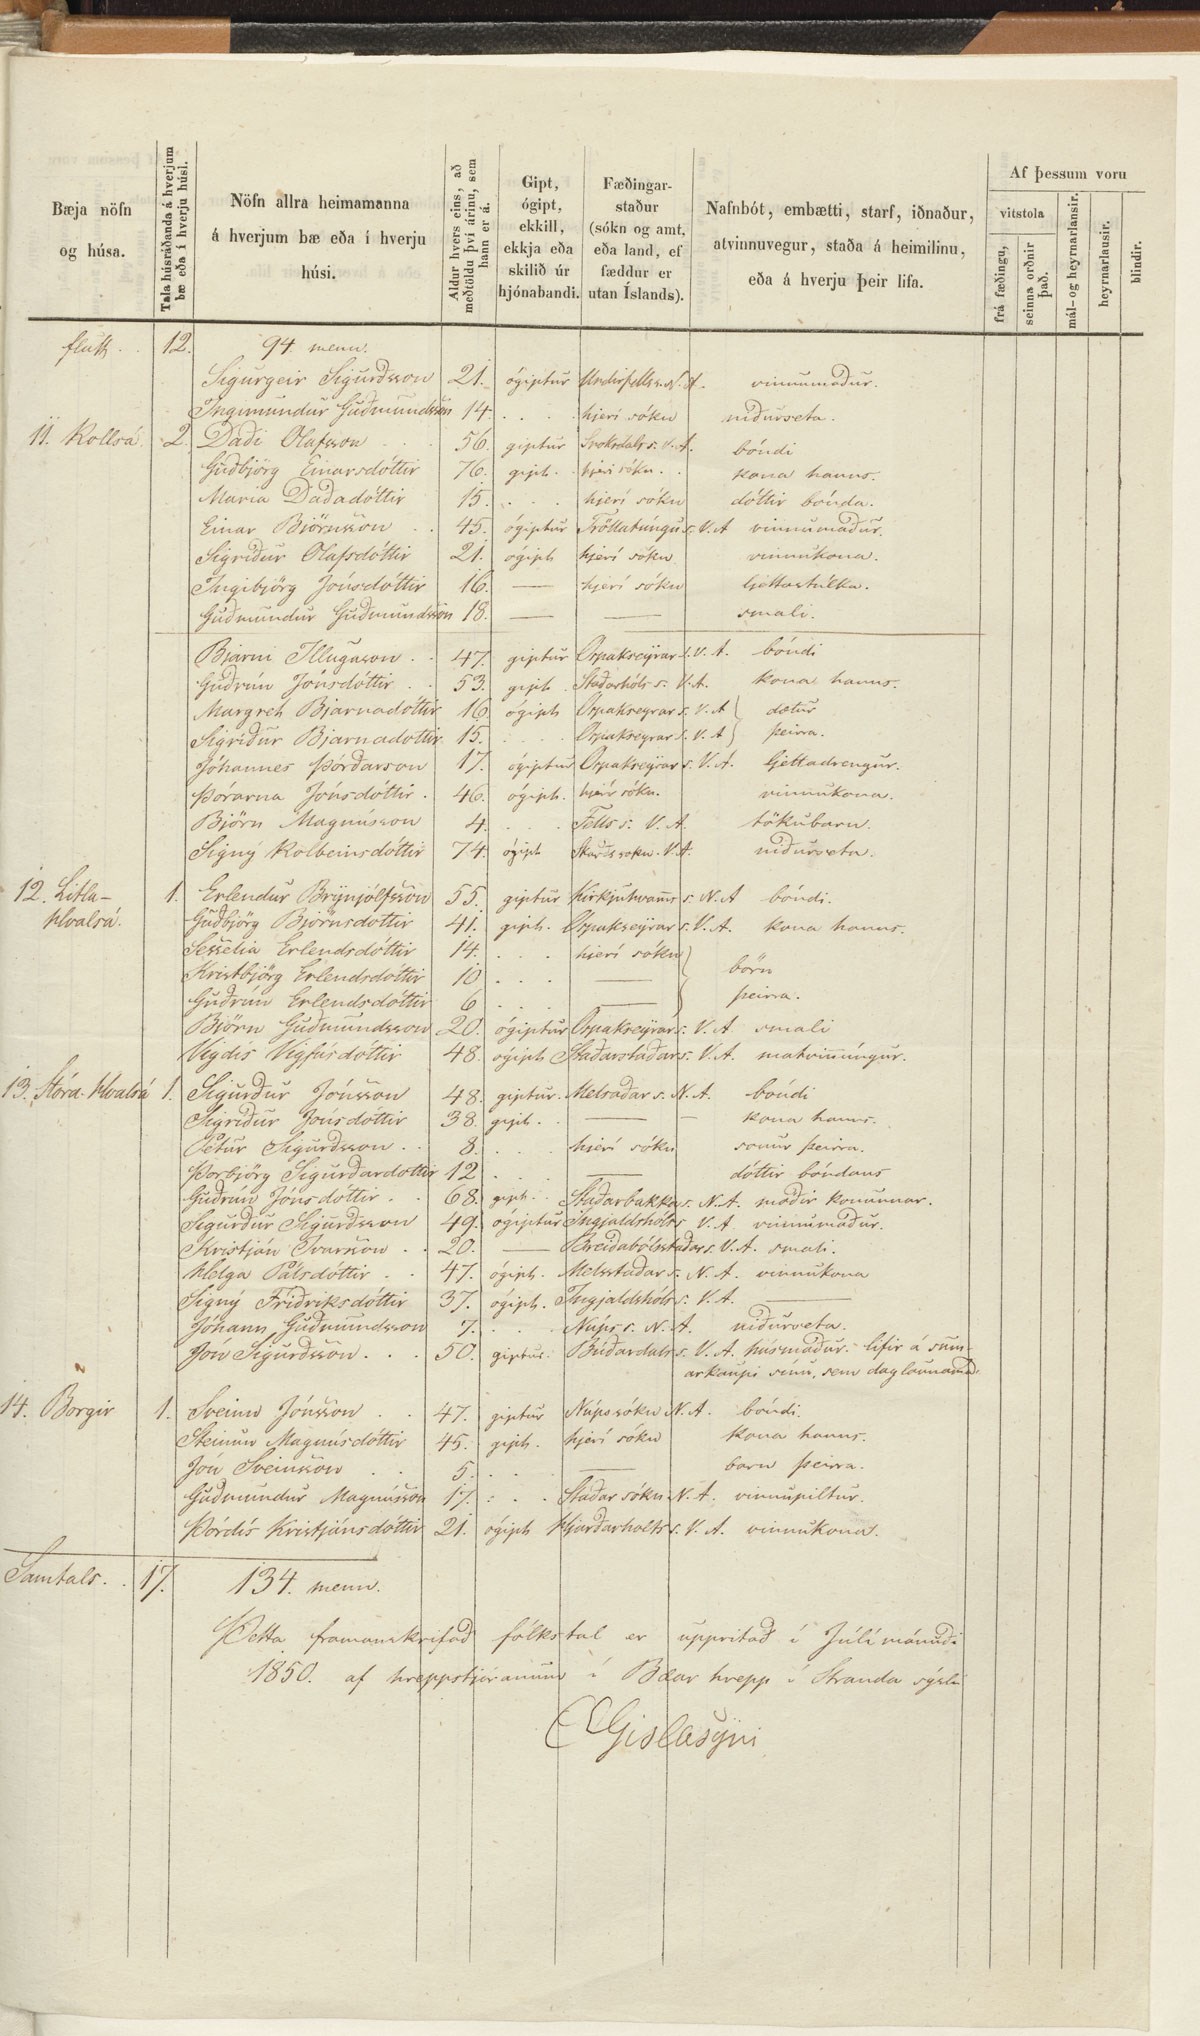 Bæja nöfn og húsa.
Tala húsráðanda á hverjum bæ eða í hverju húsi.
Nöfn allra heimamanna á hverjum bæ eða í hverju húsi.
Aldur hvers eins, að meðtöldu því árinu, sem hann er á.
Gipt, ógipt, ekkill, ekkja eða skilið úr hjónabandi.
Fæðingar-staður (sókn og amt, eða land, ef fæddur er utan Íslands).
Nafnbót, embætti, starf, iðnaður, atvinnuvegur, staða á heimilinu, eða á hverju þeir lifa.
Af þessum voru
vitstola
frá fæðingu,
seinna orðnir það.
mál- og heyrnarlausir.
heyrnarlausir.
blindir.
flutt . . 12. 94. menn.
Sigurgeir Sigurdsson 21. ógiptur Undirfells s. N. A. vinnumadur.
Ingimundur Gudmundsson 14 . . . hjerí sókn nidurseta.
11. Kollsá. 2. Dadi Olafsson . . . 56. giptur s. V. A. bóndi
Gudbjörg Einarsdóttir 76. gipt. hjerí sókn. . kona hanns.
Maria Dadadóttir 15. . . . hjerí sókn dóttir bónda.
Einar Björnsson . . 45. ógiptur Tröllatúngu s. V. A vinnumadur.
Sigrídur Olafsdóttir 21. ógipt hjerí sókn vinnukona.
Ingibjörg Jónsdóttir 16. — hjerí sókn ljettastúlka.
Gudmundur Gudmundsson 18. — — smali.
Bjarni Illugason . . 47. giptur Ospakseyrar s. V. A. bóndi
Gudrún Jónsdóttir . . 53. gipt . Stadarhóls s. V. A. kona hanns.
Margret Bjarnadóttir 16 ógipt Ospakseyrar s. V. A } dætur
Sigrídur Bjarnadottir 15. . . . Ospakseyrar s. V. A } þeirra.
Jóhannes Þórdarson 17. ógiptur Ospakseyrar s. V. A. ljettadrengur.
Þórarna Jónsdóttir . 46. ógipt. hjerí sókn. vinnukona.
Björn Magnússon 4. . . . Fells s. V. A. tökubarn.
Signý Kolbeinsdóttir 74. ógipt V. A. nidurseta.
12. Litla- 1. Erlendur Brynjólfsson 55. giptur Kirkjuhvamms s. N. A bóndi.
Hvalsá. Gudbjörg Björnsdóttir 41. gipt. Ospakseyrar s. V. A. kona hanns.
Sesselia Erlendsdóttir 14. . . . hjerí sókn }
Kristbjörg Erlendsdóttir 10 . . . — } börn
Gudrún Erlendsdóttir 6 . . . — } þeirra.
Björn Gudmundsson 20. ógiptur Ospakseyrar s. V. A smali
Vigdís Vigfúsdóttir 48. ógipt Stadarstadar s. V. A. matvinníngur.
13. Stóra-Hvalsá 1. Sigurdur Jónsson 48. giptur. Melsadar s. N. A. bóndi
Sigrídur Jónsdóttir 38. gipt. . — — kona hanns.
Petur Sigurdsson . . 8. . . . hjerí sókn sonur þeirra.
Þorbjörg Sigurdardottir 12 . . . — dóttir bóndans
Gudrún Jónsdóttir . . 68. gipt. . Stadarbakka s. N. A. módir konunnar.
Sigurdur Sigurdsson 49. ógiptur Ingjaldshóls s V. A. vinnumadur.
Kristján Ivarsson . . 20. — Breidabólsstadar s. V. A. smali.
Helga Pálsdóttir . . 47. ógipt. Melsstadar s. N. A. vinnukona
Signý Fridriksdóttir 37. ógipt. Ingjaldshóls s. V. A. —
Jóhann Gudmundsson 7. . . . Núps s. N. A. nidurseta.
Jón Sigurdsson. . . . 50. giptur. Búdardals s. V. A. húsmadur. lifir á sum-
arkaupi sínu, sem daglaunamad.
14. Borgir 1. Sveinn Jónsson . . 47. giptur Núpssókn N. A. bóndi.
Steinun Magnúsdóttir 45. gipt. hjerí sókn kona hanns.
Jón Sveinsson . . 5. . . . — barn þeirra.
Gudmundur Magnússon 17. . . . Stadar sókn N. A. vinnupiltur.
Þórdís Kristjánsdóttir 21. ógipt Hjardarholts s. V. A. vinnukona.
Samtals. . 17. 134. menn.
Þetta framanskrifad fólkstal er uppritad í Júlí mánudi
1850. af hreppstjóranum í Bæar hrepp í Stranda sýslu
EGislasyni